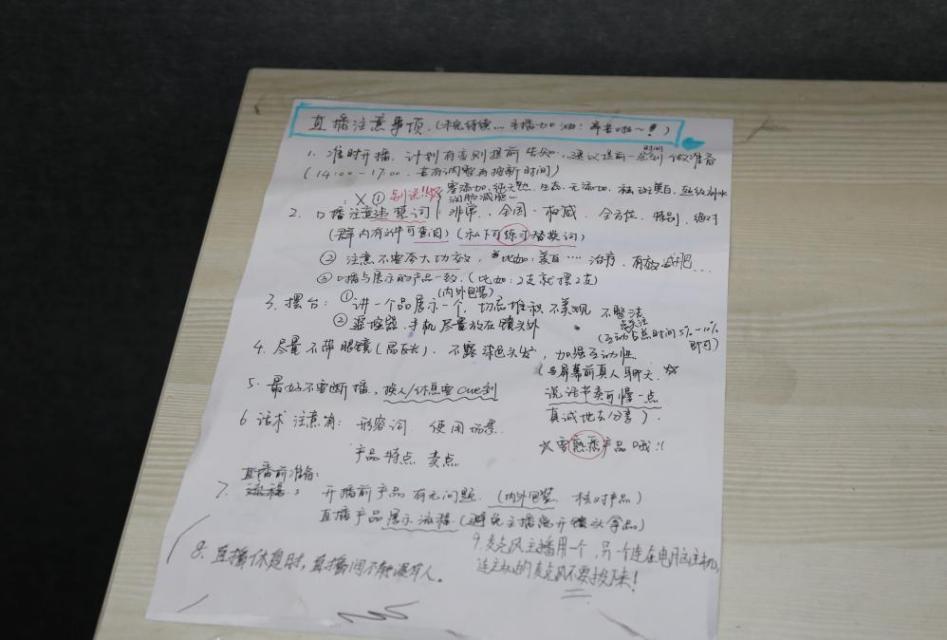 直播注意事项。(未完待续...主播加油：辛苦啦~!)
1. 准时开播，计划有变则提前告知，建议提前一些时间做准备
(14:00-17:00，若有调整再按新时间)
X ① 别说!! 零添加,纯天然,生态,无添加,祛斑美白,
润肠减脂
2. 口播注意违禁词: 非常、全国、权威、全方位、特别、绝对
(群内有文件可查阅)(私下可练习替换词)
② 注意不要夸大功效, 比如:美白……治疗,有效
③ 口播与展示的产品一致,(比如:2支就摆2支)
3. 摆台: ① 讲一个品展示一个,(内外包装)切忌堆积不美观 不整洁
② 遥控器、手机尽量放在镜头外
(互动占点时间5%-10%即可)
4. 尽量不带眼镜(居长), 不露染色头发, 加强互动性
(与屏幕前真人聊天,
说话节奏可慢一点
真诚地去分享).
5. 最好不要断播, 换人/休息要cue到
6 话术注意角: 形容词 使用场景
产品特点 卖点
要熟悉产品哦!!
直播前准备:
7. 开播前产品有无问题 (内外包装 核对产品)
直播产品展示流程(避免主播离开镜头拿品)
8. 直播休息时, 直播间不能没有人.
9. 麦克风主播用一个,另一个连在电脑主机,
连主机的麦克风不要拔下来!